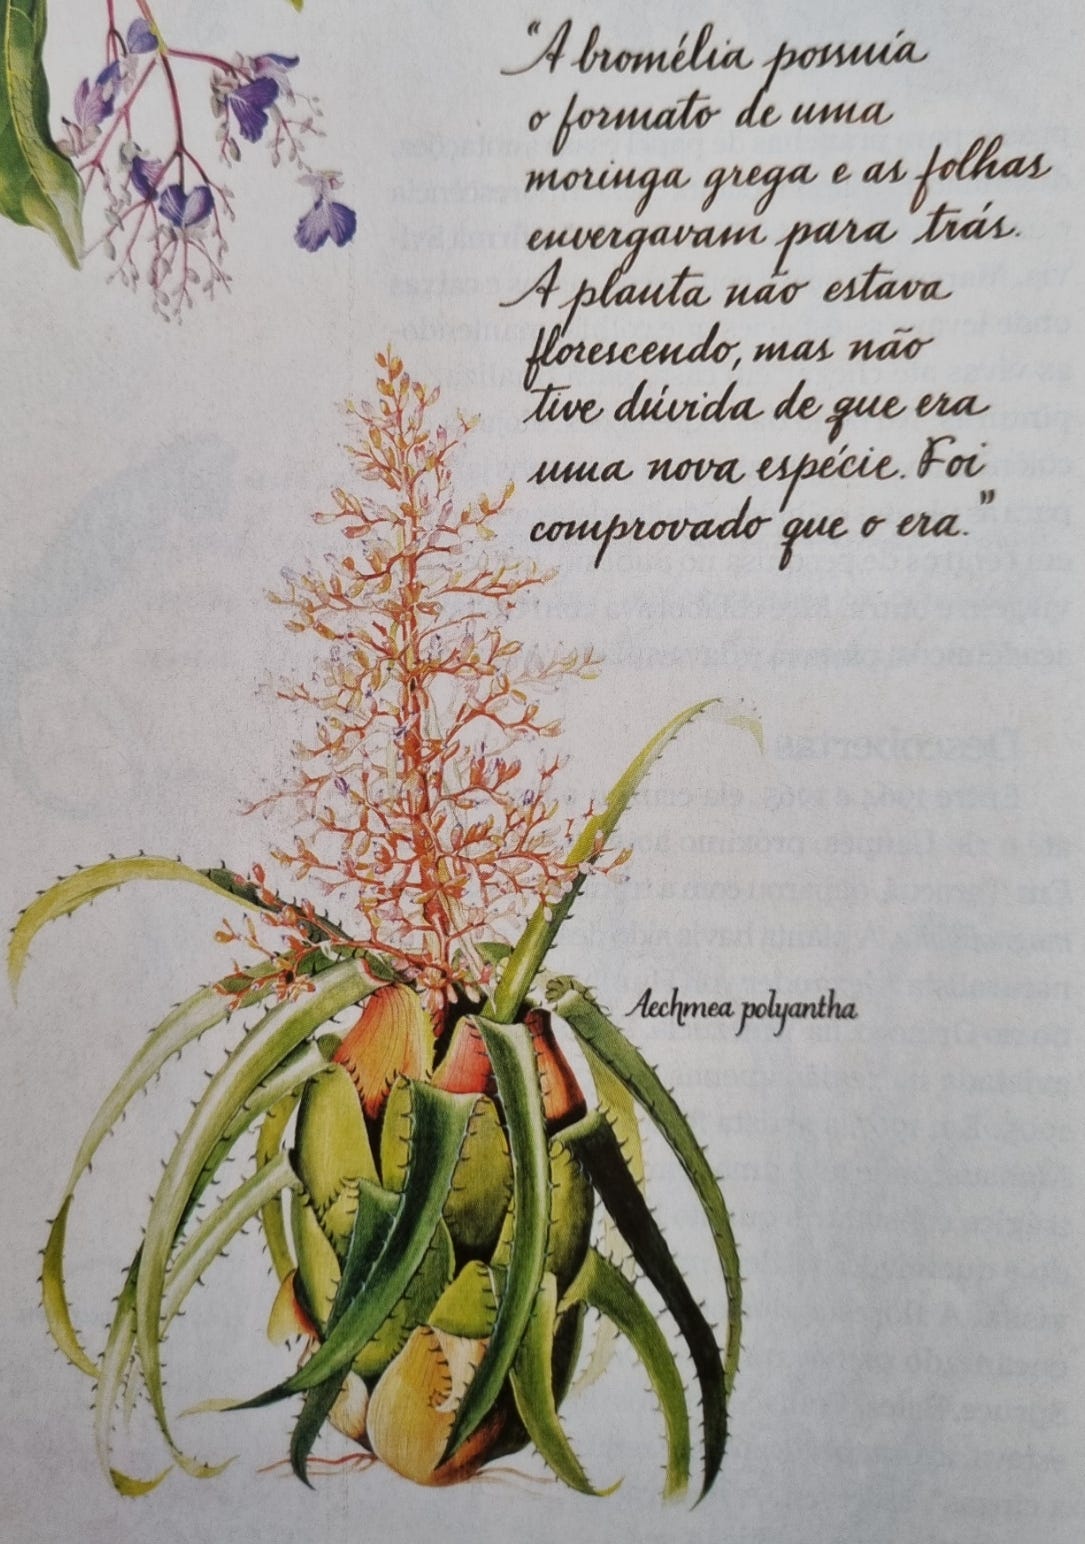 “A bromélia possuía
o formato de uma
moringa grega e as folhas
envergavam para trás.
A planta não estava
florescendo, mas não
tive dúvida de que era
uma nova espécie. Foi
comprovado que o era.”
Aechmea polyantha